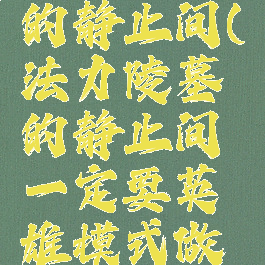 的静止间(
法力陵墓
的静止间
一定要英
雄模式做